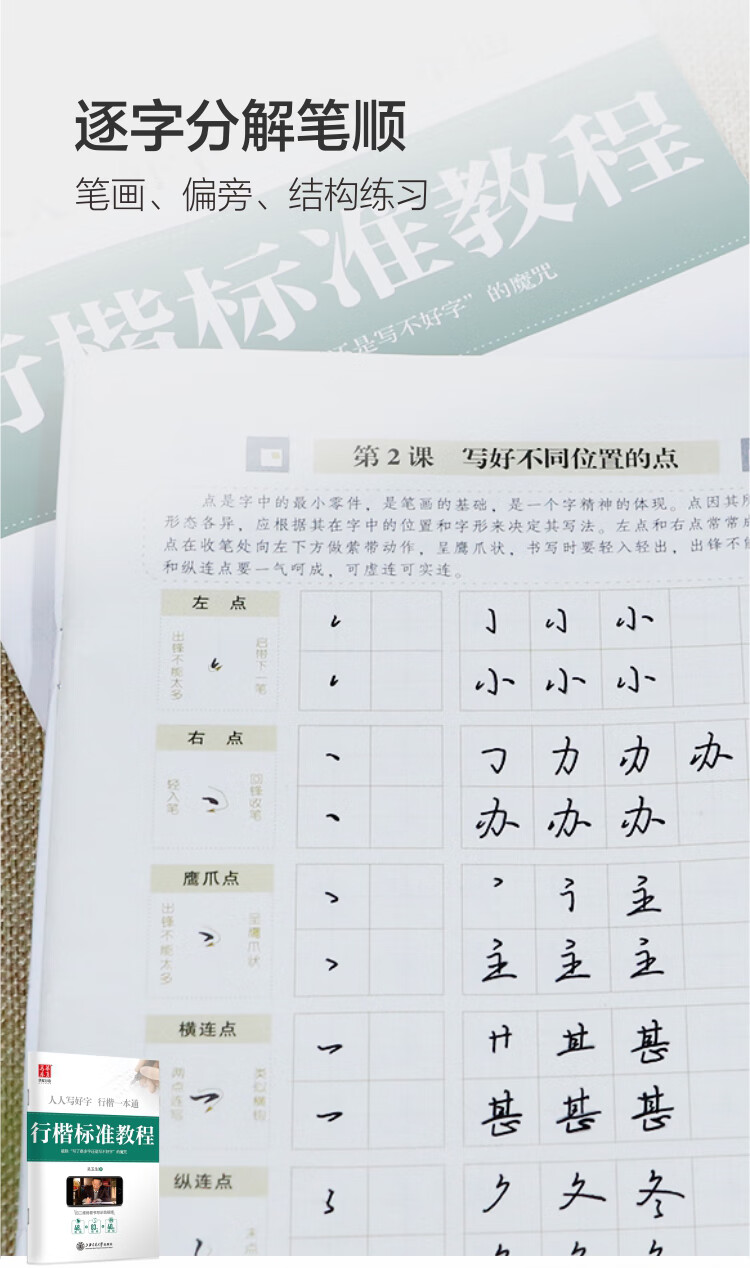 逐字分解笔顺
笔画、偏旁、结构练习
行楷标准教程
还是写不好字”的魔咒
第2课 写好不同位置的点
点是字中的最小零件，是笔画的基础，是一个字精神的体现。点因其所
形态各异，应根据其在字中的位置和字形来决定其写法。左点和右点常常
点在收笔处向左下方做萦带动作，呈鹰爪状，书写时要轻入轻出，出锋不能
和纵连点要一气呵成，可虚连可实连。
左点
出锋不能太多
启带下一笔
小
小 小 小
右点
轻入笔
回锋收笔
力 办
办 办 办
鹰爪点
出锋不能太多
呈鹰爪状
主
主 主 主
横连点
两点连写
类似横钩
甚
甚 甚 甚
纵连点
夂 冬
人人写好字 行楷一本通
行楷标准教程